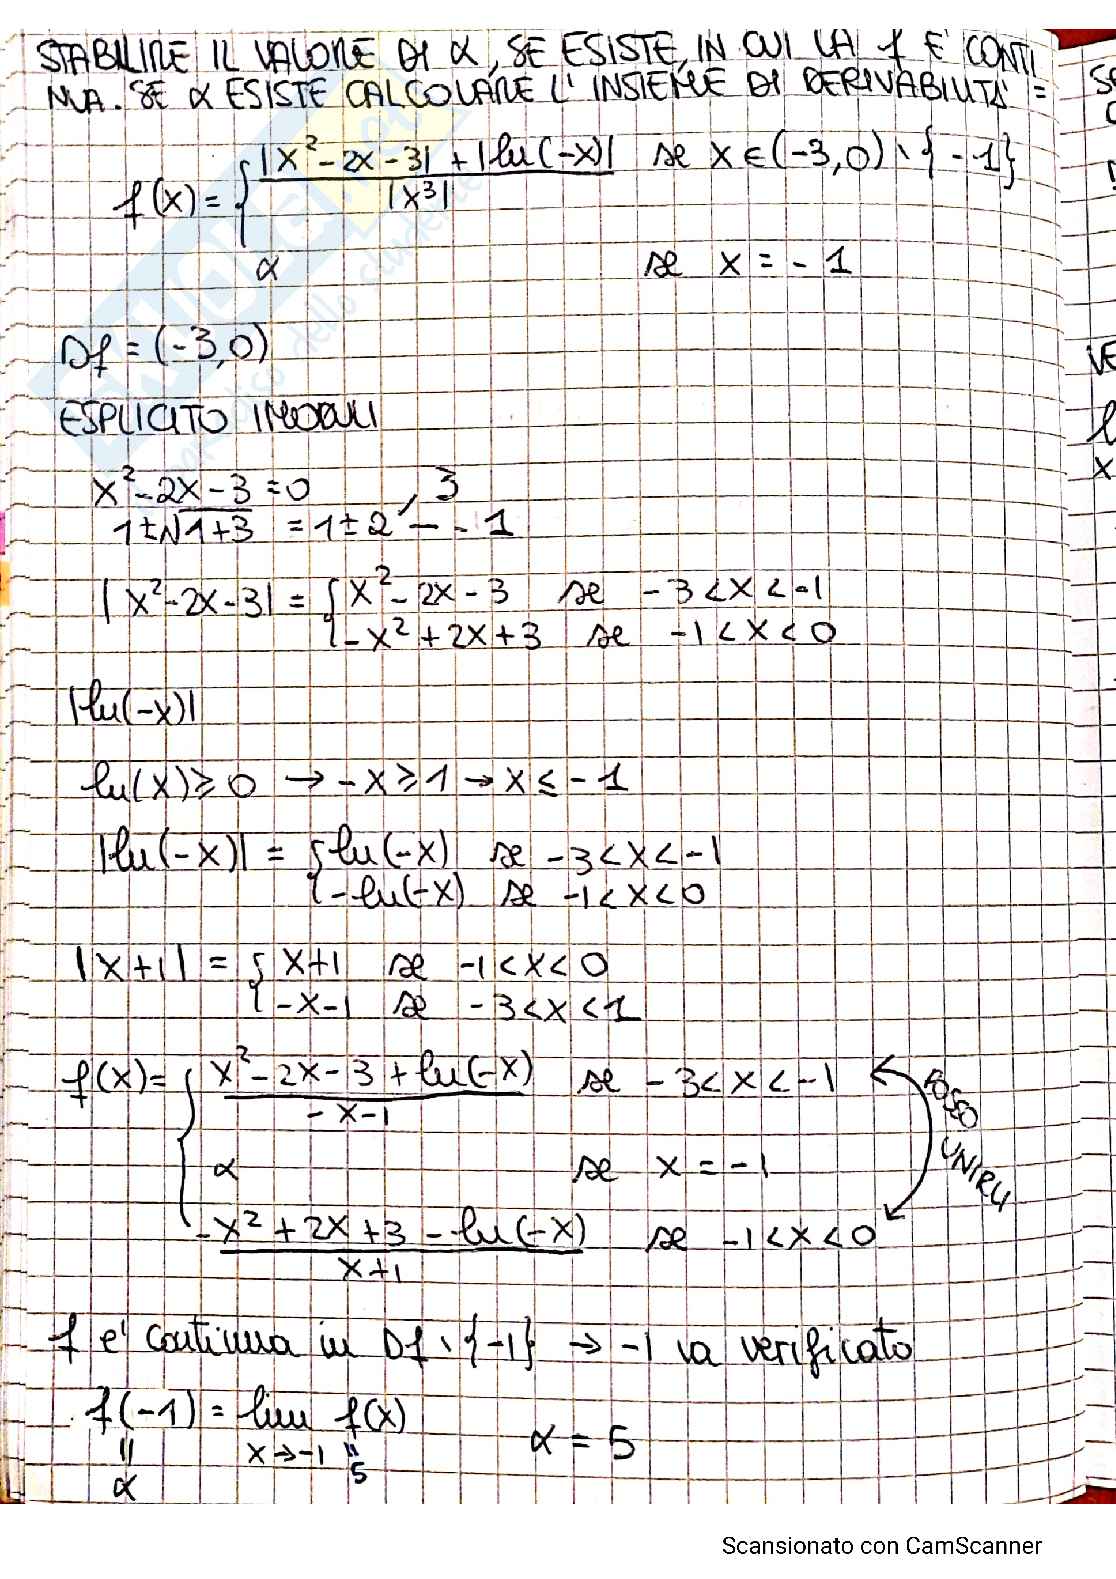 STABILIRE IL VALORE DI α, SE ESISTE, IN CUI LA f E' CONTI
NUA. SE α ESISTE CALCOLARE L'INSIEME DI DERIVABILITA' =
f(x) = { |x²-2x-3| + |ln(-x)| / |x³| se x ∈ (-3,0) \ {-1}
α se x = -1
Df = (-3,0)
ESPLICITO I MODULI
x²-2x-3=0
1±√1+3 = 1±2 3 -1
|x²-2x-3| = { x²-2x-3 se -3<x<-1
-x²+2x+3 se -1<x<0
|ln(-x)|
ln(x)≥0 → -x≥1 → x≤-1
|ln(-x)| = { ln(-x) se -3<x<-1
-ln(-x) se -1<x<0
|x+1| = { x+1 se -1<x<0
-x-1 se -3<x<1
f(x) = { x²-2x-3+ln(-x) / -x-1 se -3<x<-1
POSSO UNIRLI
α se x = -1
-x²+2x+3-ln(-x) / x+1 se -1<x<0
f e' continua in Df \ {-1} → -1 va verificato
f(-1) = lim f(x) α = 5
x→-1
α 5
Scansionato con CamScanner